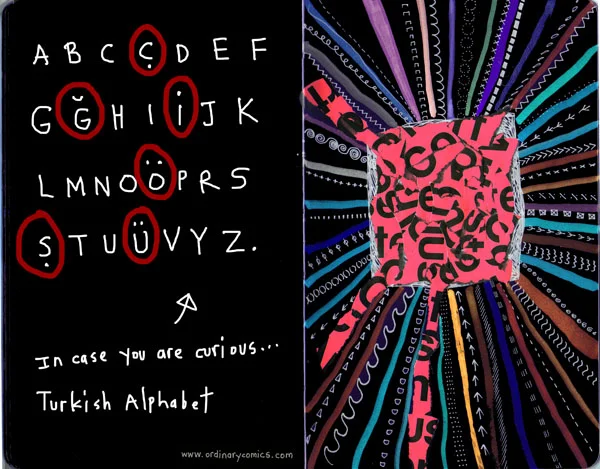 A B C Ç D E F
G Ğ H I İ J K
L M N O Ö P R S
Ş T U Ü V Y Z.
In case you are curious...
Turkish Alphabet
www.ordinarycomics.com